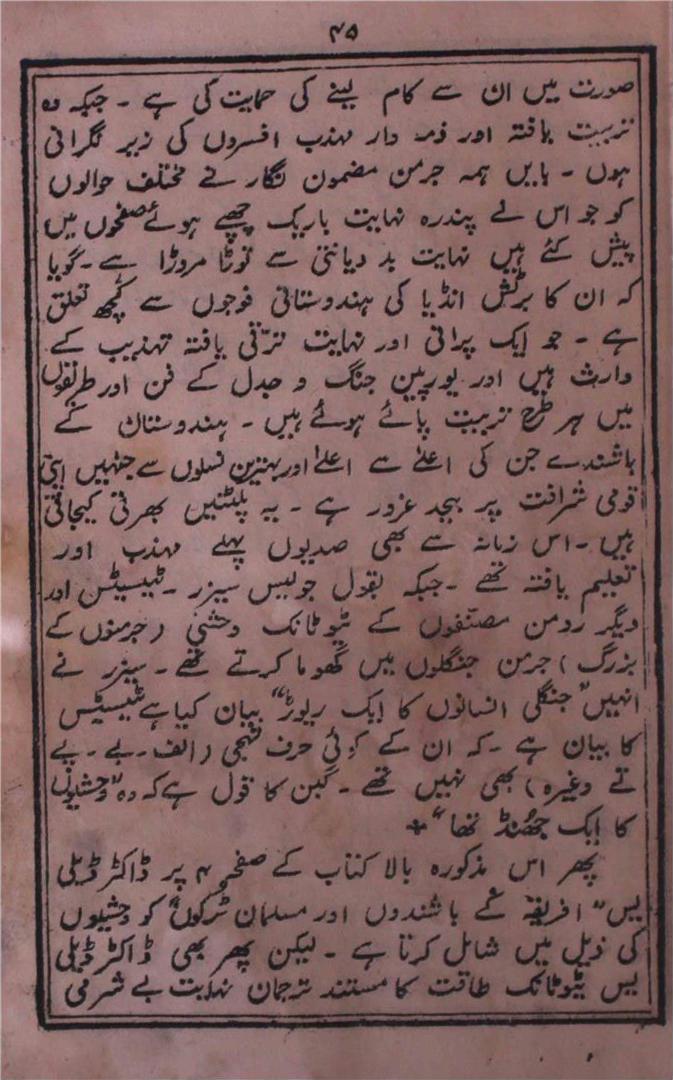 ۴۵
صورت میں ان سے کام لینے کی حمایت کی ہے ۔ جبکہ وہ
تربیت یافتہ اور ذمہ دار مہذب افسروں کی زیر نگرانی
ہوں ۔ بایں ہمہ جرمن مضمون نگار نے مختلف حوالوں
کو جو اس نے پندرہ نہایت باریک چھپے ہوئے صفحوں میں
پیش کئے ہیں نہایت بد دیانتی سے توڑا مروڑا ہے ۔ گویا
کہ ان کا برٹش انڈیا کی ہندوستانی فوجوں سے کچھ تعلق
ہے ۔ جو ایک پرانی اور نہایت ترقی یافتہ تہذیب کے
وارث ہیں اور یورپین جنگ و جدل کے فن اور طریقوں
میں ہر طرح تربیت پائے ہوئے ہیں ۔ ہندوستان کے
باشندے جن کی اعلےٰ سے اعلےٰ اور بہترین نسلوں سے جنہیں اپنی
قومی شرافت پر بیحد غرور ہے ۔ یہ پلٹنیں بھرتی کیجاتی
ہیں ۔ اس زمانہ سے بھی صدیوں پہلے مہذب اور
تعلیم یافتہ تھے ۔ جبکہ بقول جولیس سیزر ۔ ٹیسیٹس اور
دیگر رومن مصنفوں کے ٹیوٹانک وحشی (جرمنوں کے
بزرگ) جرمن جنگلوں میں گھوما کرتے تھے ۔ سیزر نے
انہیں "جنگلی انسانوں کا ایک ریوڑ" بیان کیا ہے ٹیسیٹس
کا بیان ہے ۔ کہ ان کے کوئی حرف تہجی (الف ۔ بے ۔ پے
تے وغیرہ) بھی نہیں تھے ۔ گبن کا قول ہے کہ وہ "وحشیوں
کا ایک جھنڈ تھا" +
پھر اس مذکورہ بالا کتاب کے صفحہ ۴ پر ڈاکٹر ڈیلی
یس "افریقہ کے باشندوں اور مسلمان ترکوں" کو وحشیوں
کی ذیل میں شامل کرتا ہے ۔ لیکن پھر بھی ڈاکٹر ڈیلی
یس ٹیوٹانک طاقت کا مستند ترجمان نہایت بے شرمی